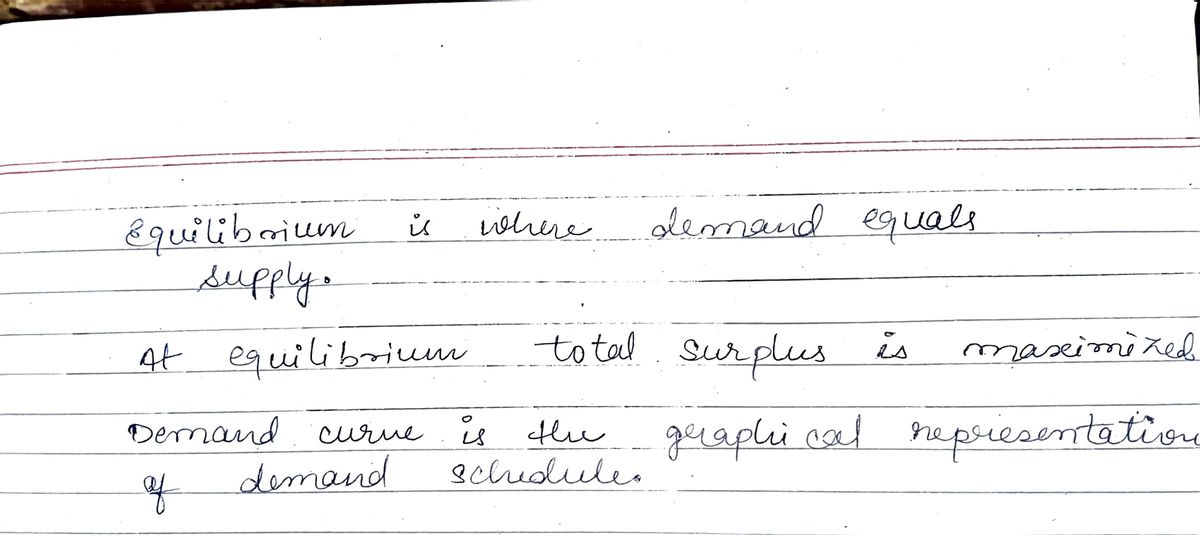 Equilibrium is where demand equals
supply.
At equilibrium total surplus is maximized
Demand curve is the graphical representation
of demand schedule.